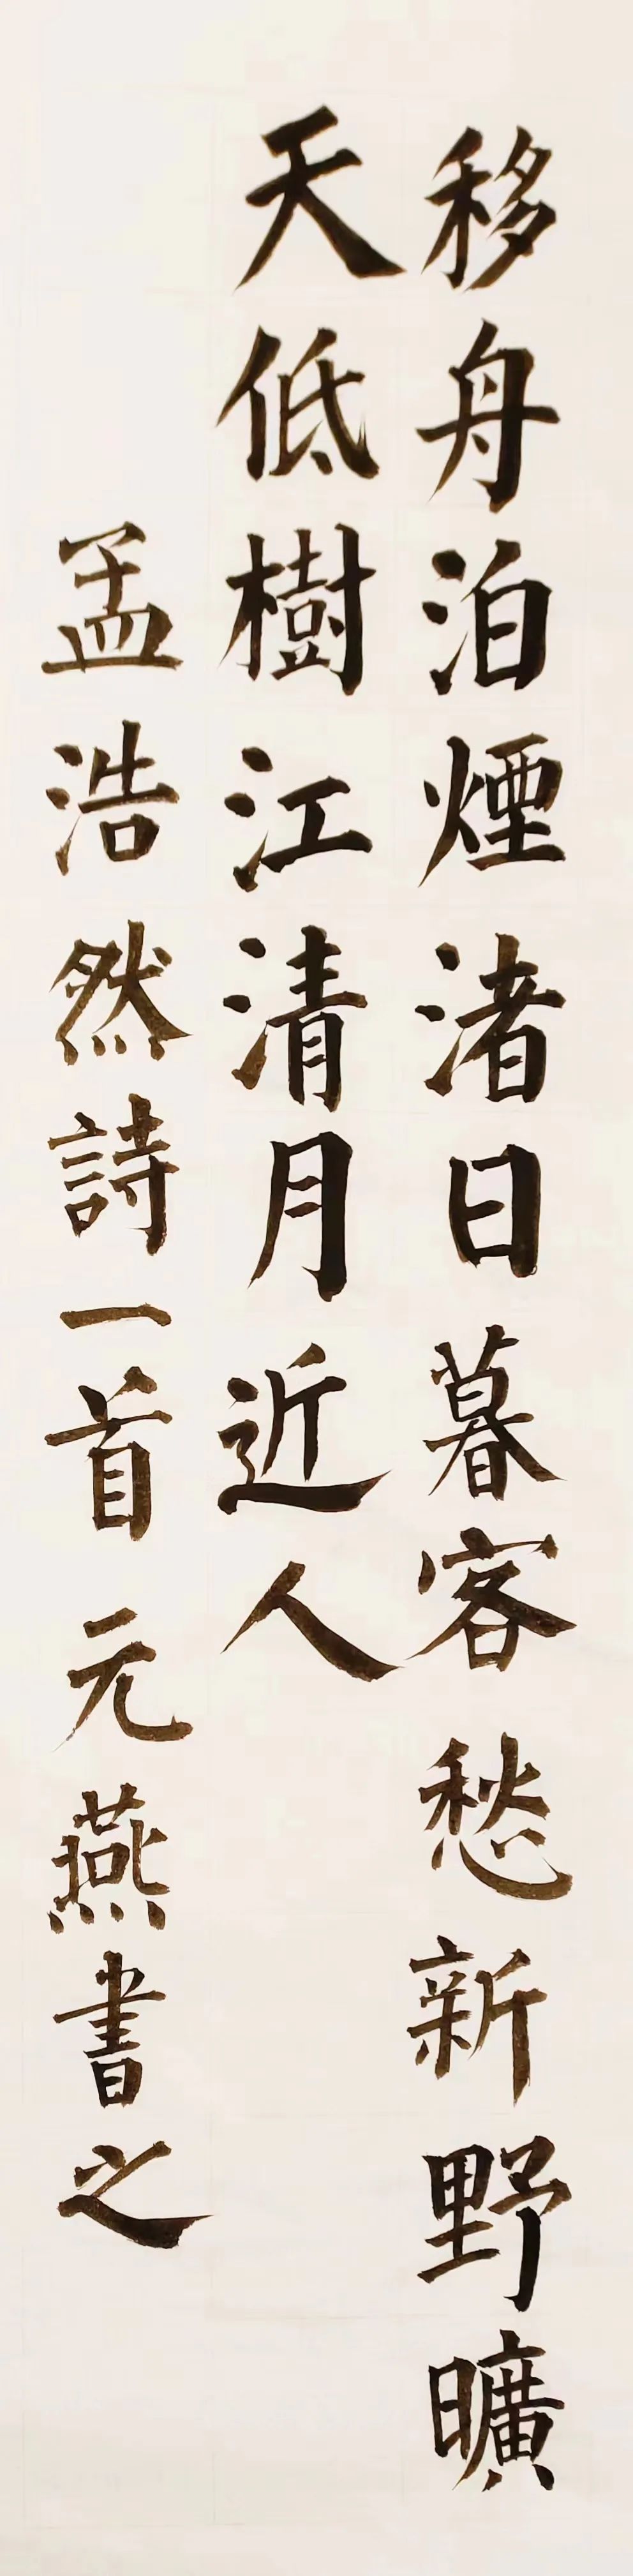 移舟泊煙渚日暮客愁新野曠
天低樹江清月近人
孟浩然詩一首 元燕書之